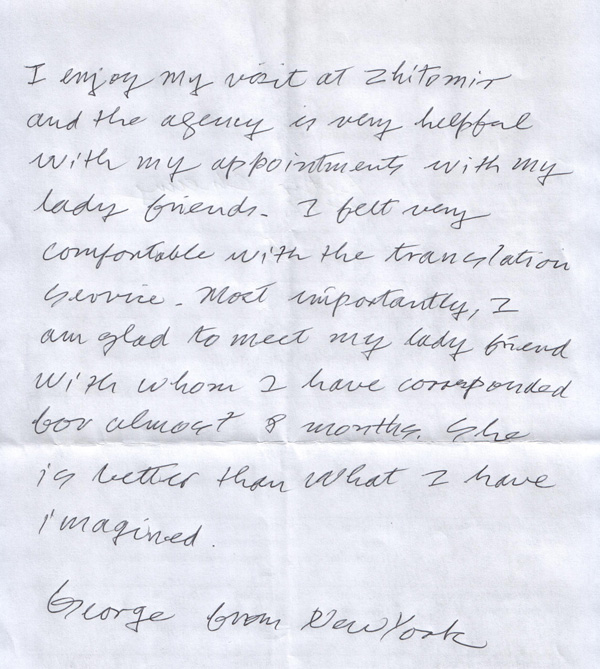 I enjoy my visit at Zhitomir
and the agency is very helpful
with my appointments with my
lady friends. I felt very
comfortable with the translation
service. Most importantly, I
am glad to meet my lady friend
with whom I have corresponded
for almost 8 months. She
is better than what I have
imagined.
George from New York